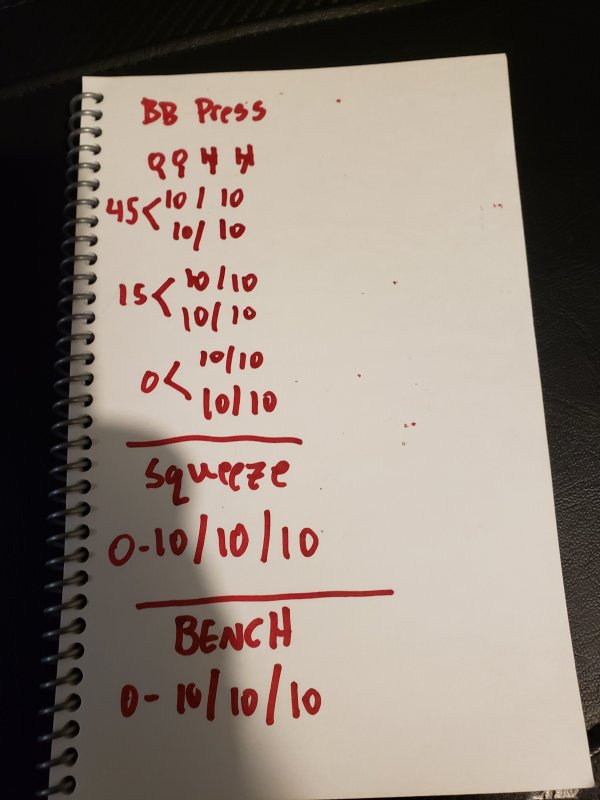 BB Press
45< 10/10
10/10
15< 10/10
10/10
0< 10/10
10/10
Squeeze
0-10/10/10
BENCH
0-10/10/10